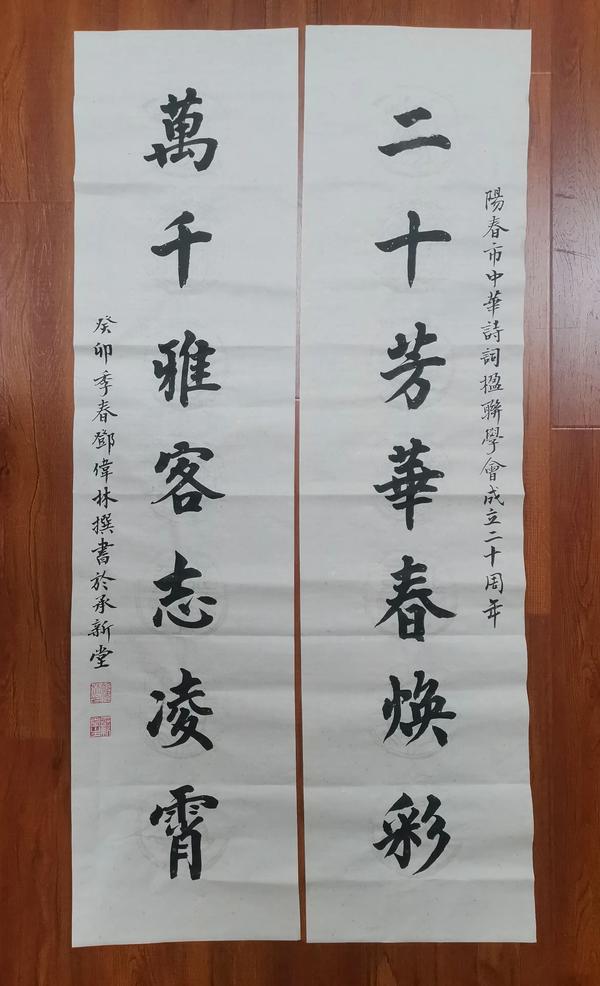 陽春市中華詩詞楹聯學會成立二十周年
二十芳華春焕彩
萬千雅客志凌霄
癸卯季春鄧偉林撰書於承新堂